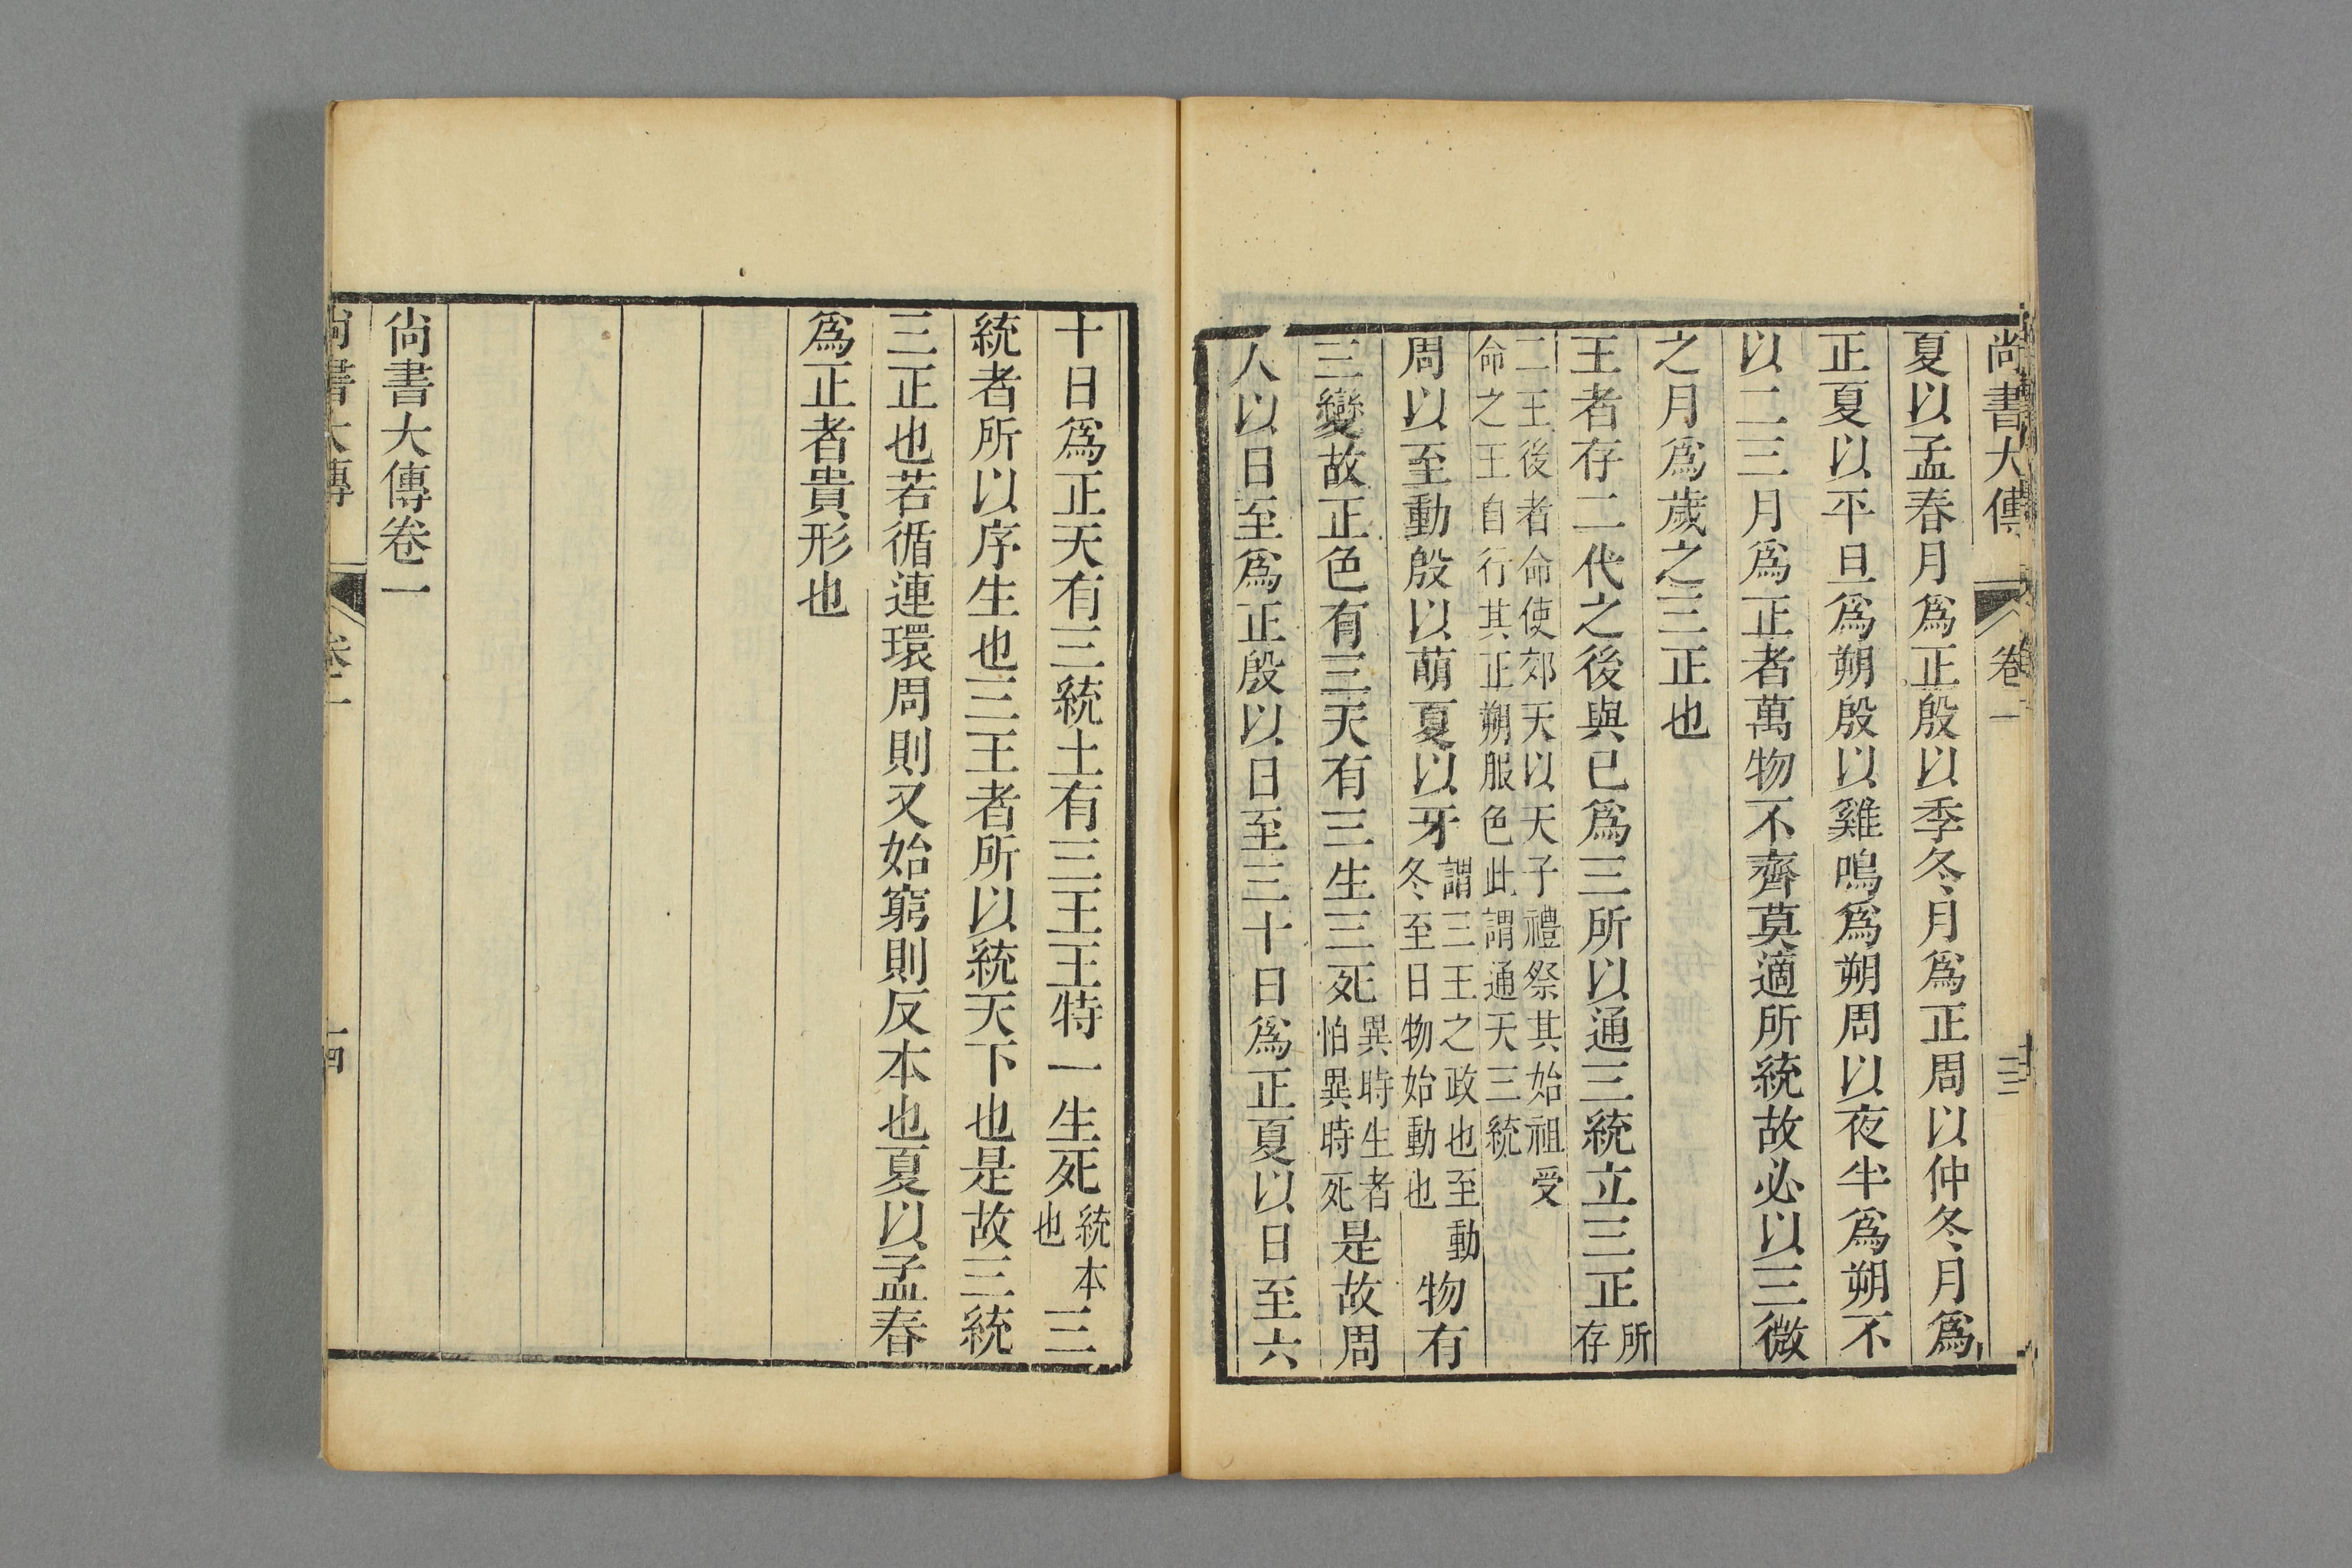 尚書大傳 卷一 十三
夏以孟春月爲正殷以季冬月爲正周以仲冬月爲
正夏以平旦爲朔殷以雞鳴爲朔周以夜半爲朔不
以二三月爲正者萬物不齊莫適所統故必以三微
之月爲歲之三正也
王者存二代之後與已爲三所以通三統立三正所存
二王後者命使郊天以天子禮祭其始祖受
命之王自行其正朔服色此謂通天三統
周以至動殷以萌夏以牙謂三王之政也至動冬至日物始動也物有
三變故正色有三天有三生三死異時生者怕異時死是故周
人以日至爲正殷以日至三十日爲正夏以日至六
十日爲正天有三統土有三王王特一生死統本也三
統者所以序生也三王者所以統天下也是故三統
三正也若循連環周則又始窮則反本也夏以孟春
爲正者貴形也
尚書大傳卷一
尚書大傳 卷一 十四